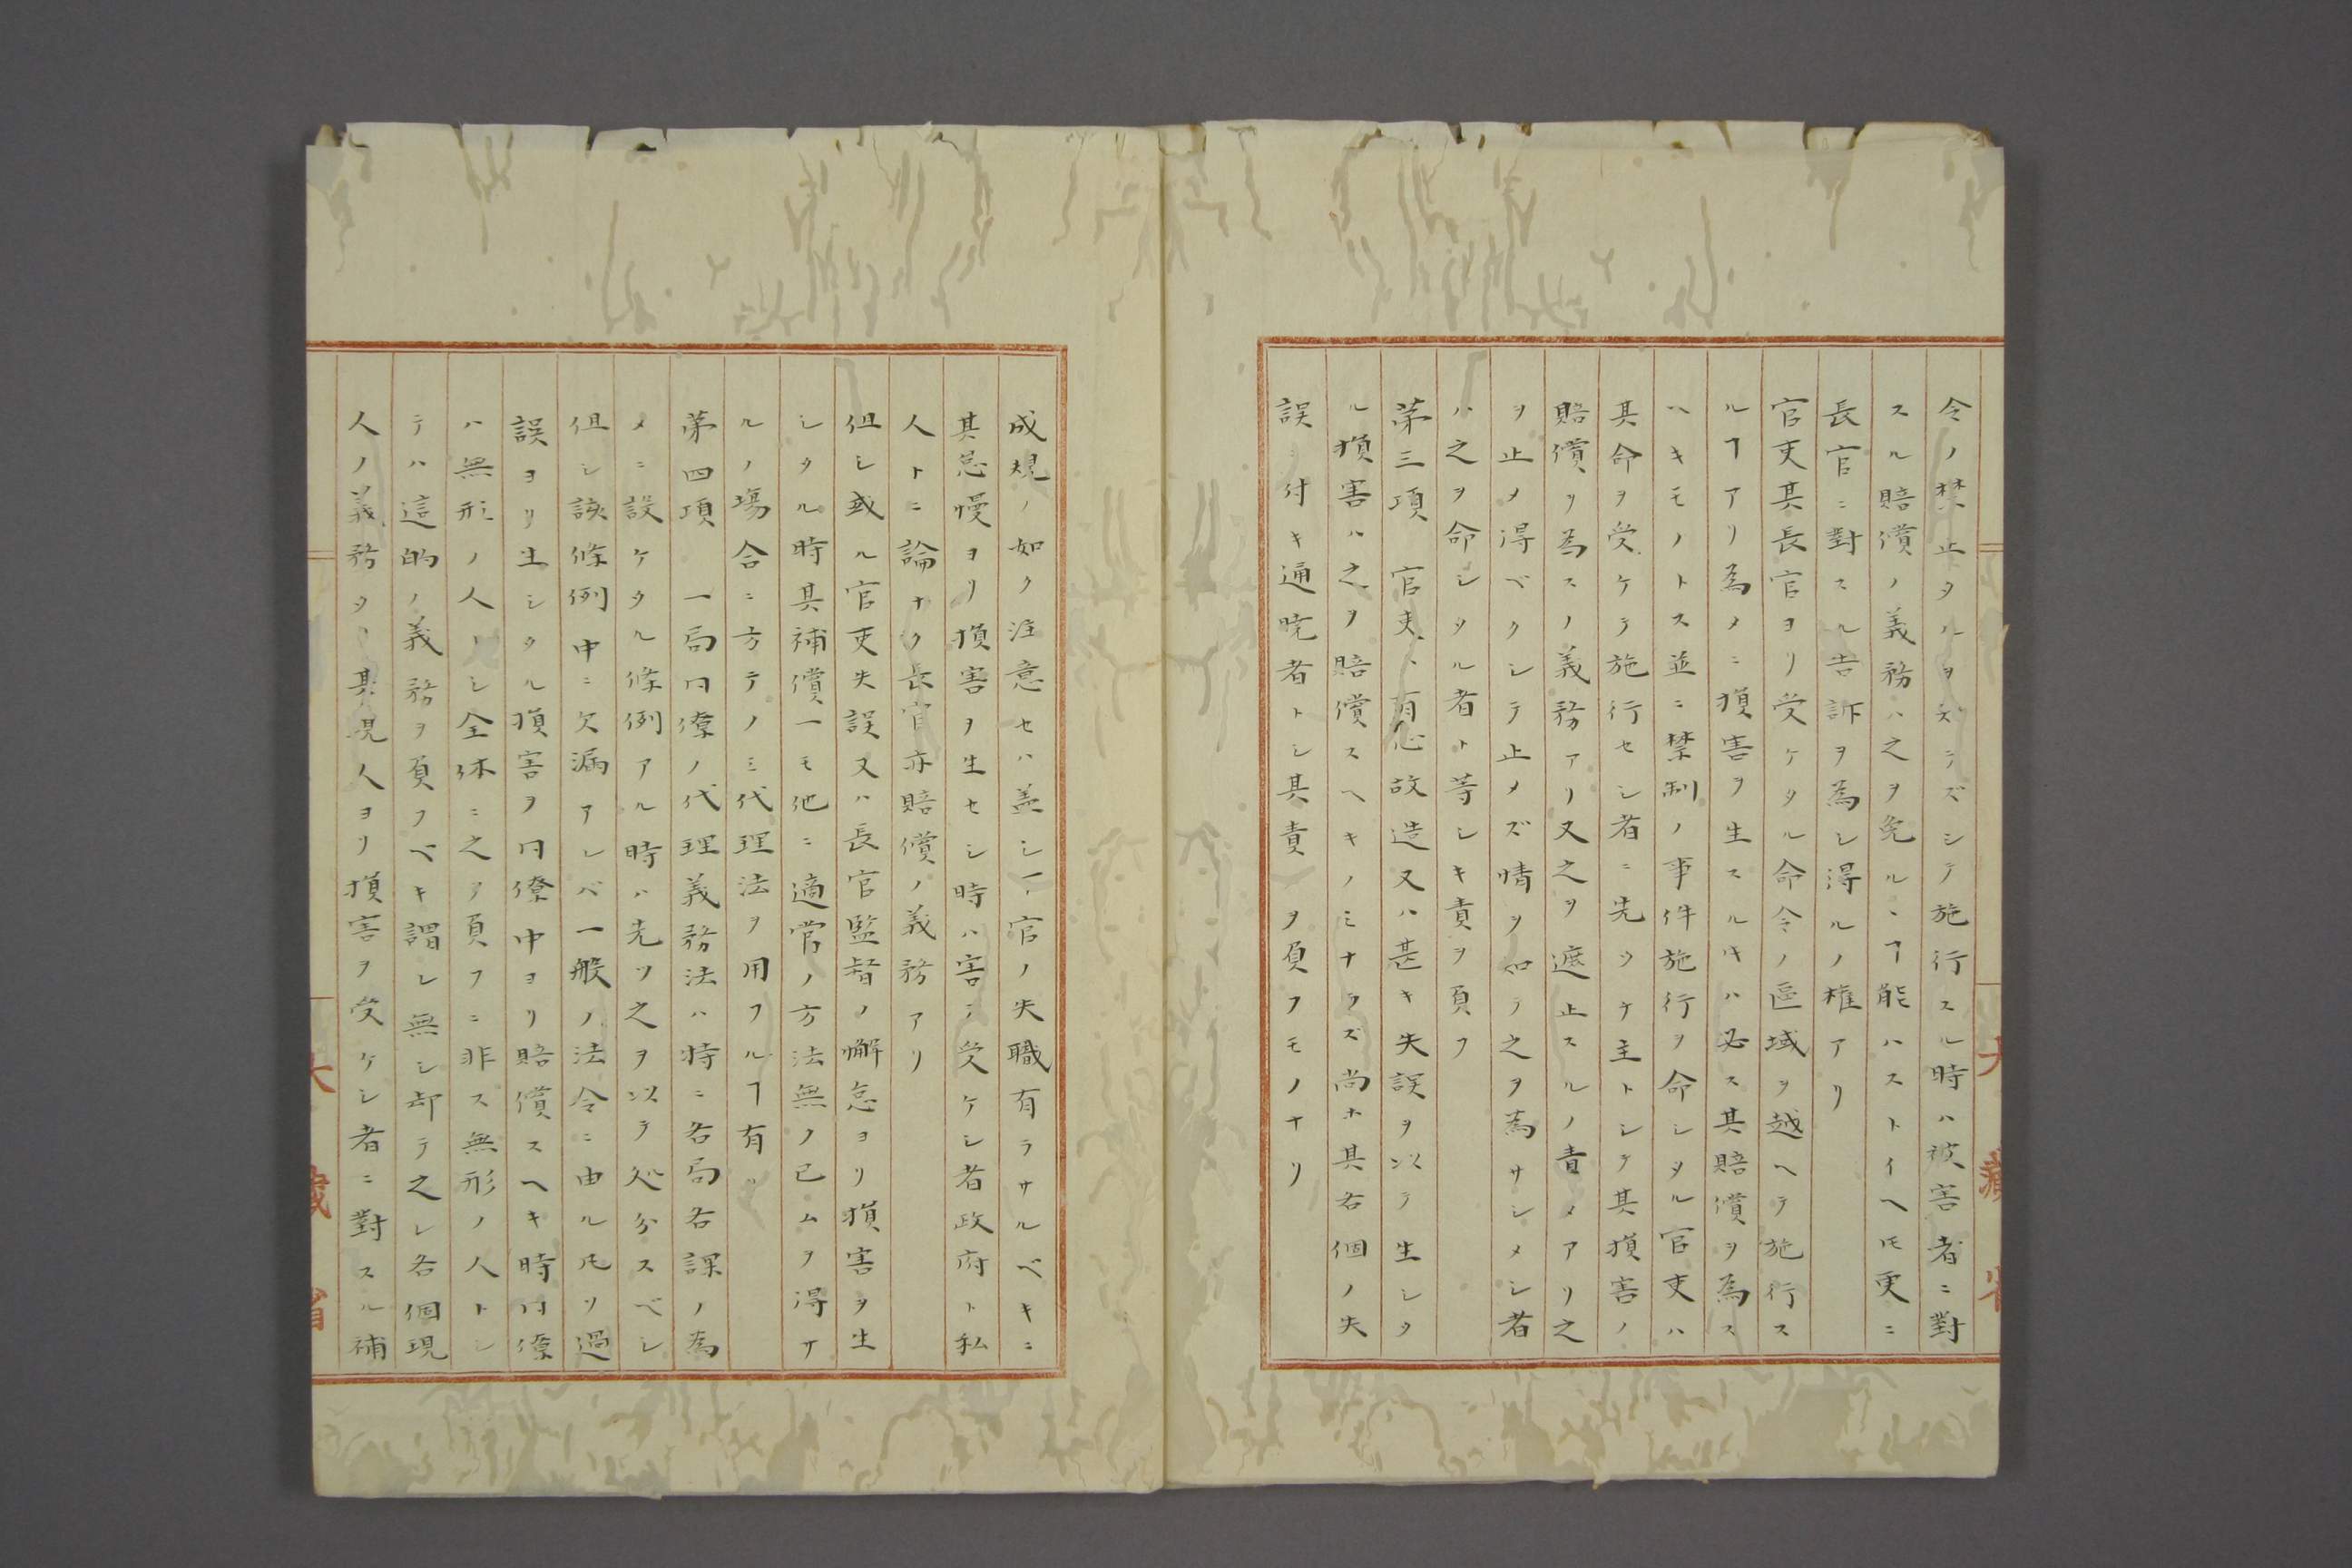 令ノ禁止タルヲ知ラズシテ施行スル時ハ被害者ニ對
スル賠償ノ義務ハ之ヲ免ルヽヿ能ハストイヘ𪜈更ニ
長官ニ對スル告訴ヲ為シ得ルノ権アリ
官吏其長官ヨリ受ケタル命令ノ區域ヲ越ヘテ施行ス
ルヿアリ為メニ損害ヲ生スル𪜈ハ必ス其賠償ヲ為ス
ヘキモノトス並ニ禁制ノ事件施行ヲ命シタル官吏ハ
其命ヲ受ケテ施行セシ者ニ先ツケ主トシテ其損害ノ
賠償ヲ為スノ義務アリ又之ヲ遮止スルノ責メアリ之
ヲ止メ得ベクシテ止メズ情ヲ知テ之ヲ為サシメシ者
ハ之ヲ命シタル者ト等シキ責ヲ負フ
第三項 官吏ハ有心故造又ハ甚キ失誤ヲ以テ生シタ
ル損害ハ之ヲ賠償スヘキノミナラズ尚ホ其各個ノ失
誤ニ付キ通暁者トシ其責ヲ負フモノナリ
大藏省
成規ノ如ク注意セハ蓋シ官ノ失職有ラサルベキニ
其怠慢ヨリ損害ヲ生セシ時ハ害ヲ受ケシ者政府ト私
人トニ論ナク長官亦賠償ノ義務アリ
但シ或ル官吏失誤又ハ長官監督ノ懈怠ヨリ損害ヲ生
シタル時其補償一モ他ニ適當ノ方法無ク已ムヲ得サ
ルノ場合ニ方テノミ代理法ヲ用フルヿ有リ
第四項 一局同僚ノ代理義務法ハ特ニ各局各課ノ為
メニ設ケタル條例アル時ハ先ツ之ヲ以テ処分スベシ
但シ該條例中ニ欠漏アレバ一般ノ法令ニ由ル凡ソ過
誤ヨリ生シタル損害ヲ同僚中ヨリ賠償スヘキ時同僚
ハ無形ノ人トシ全体ニ之ヲ負フニ非ス無形ノ人トシ
テハ這的ノ義務ヲ負フベキ謂レ無シ却テ之レ各個現
人ノ義務タリ其現人ヨリ損害ヲ受ケシ者ニ對スル補
大藏省